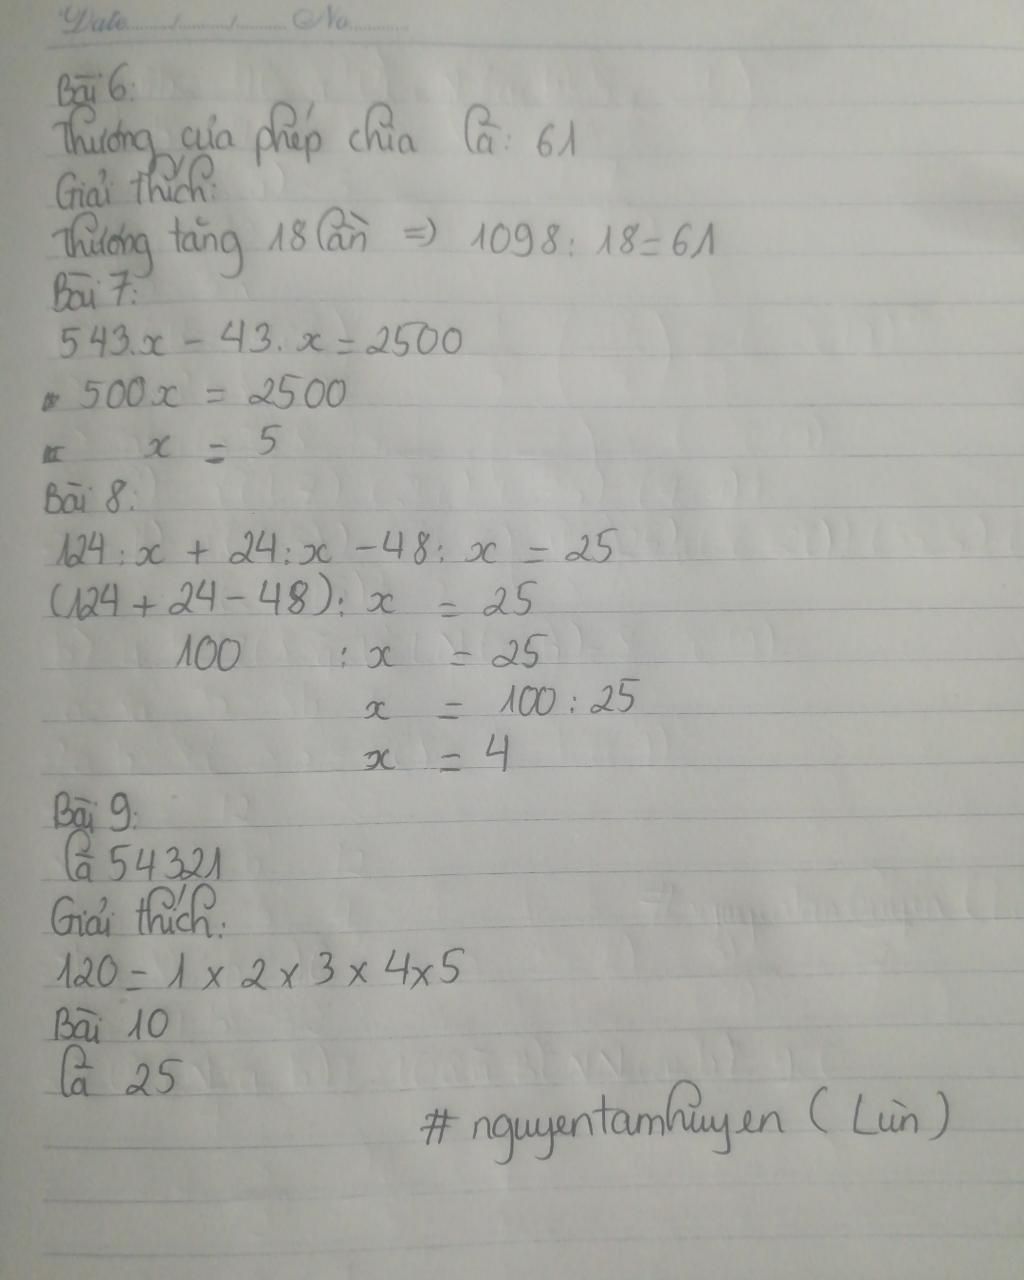 Date....../......./........ No..........
Bài 6:
Thương của phép chia là: 61
Giải thích:
Thương tăng 18 lần => 1098 : 18 = 61
Bài 7:
543.x - 43. x = 2500
500x = 2500
x = 5
Bài 8:
124 : x + 24 : x - 48 : x = 25
(124 + 24 - 48) : x = 25
100 : x = 25
x = 100 : 25
x = 4
Bài 9:
là 54321
Giải thích:
120 = 1 x 2 x 3 x 4 x 5
Bài 10
là 25
# nguyentamhuyen ( Lùn )